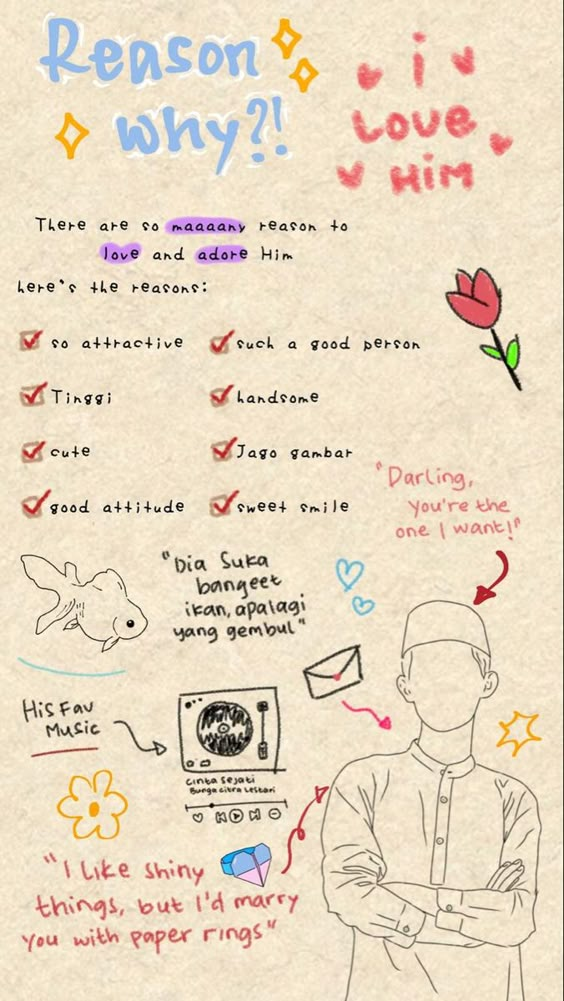 Reason
why?!
i
Love
Him
There are so maaaany reason to
love and adore Him
here's the reasons:
so attractive
such a good person
Tinggi
handsome
cute
Jago gambar
good attitude
sweet smile
"Darling,
you're the
one I want!"
"Dia Suka
bangeet
ikan, apalagi
yang gembul"
His Fav
Music
Cinta Sejati
Bunga Citra Lestari
"I like shiny
things, but I'd marry
you with paper rings"